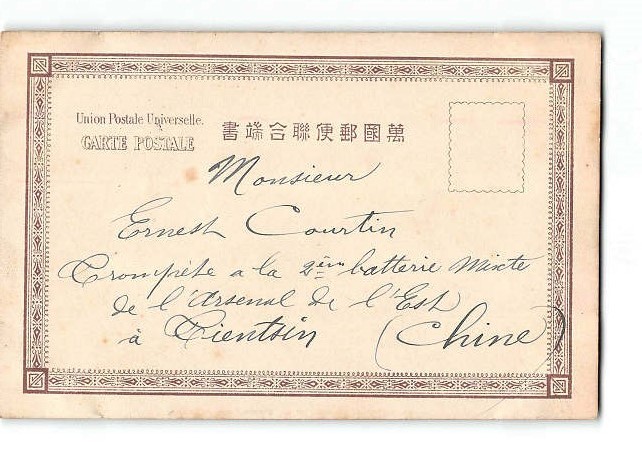 Union Postale Universelle.
CARTE POSTALE
書端合聯便郵國萬
Monsieur
Ernest Courtin
Trompète a la 2ème batterie Mixte
de l'Arsenal de l'Est
à Tientsin (Chine)